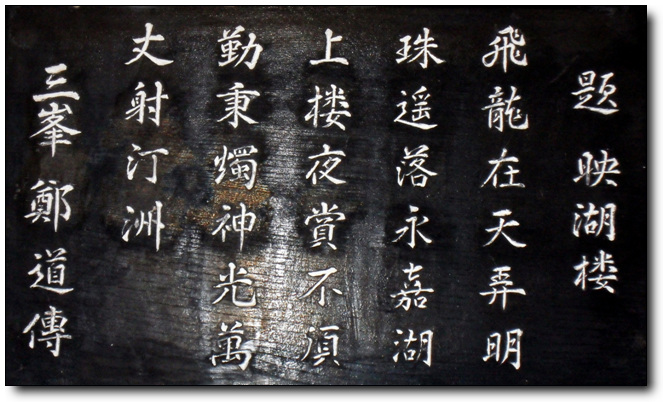 題 映湖楼
飛龍在天弄明
珠遥落永嘉湖
上楼夜賞不須
勤秉燭神光萬
丈射汀洲
三峯 鄭道傳